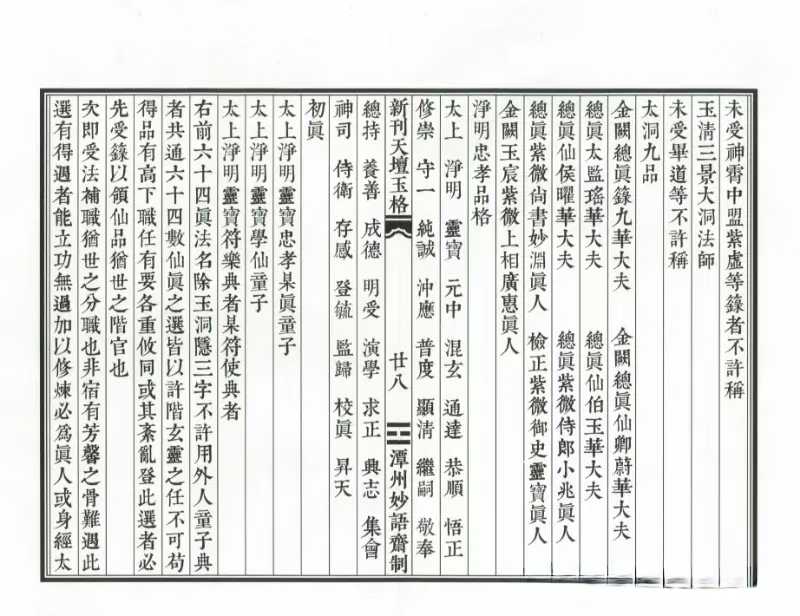 未受神霄中盟紫虛等籙者不許稱
玉清三景大洞法師
未受畢道等不許稱
太洞九品
金闕總眞籙九華大夫　金闕總眞仙卿蔚華大夫
總眞太監瑤華大夫　總眞仙伯玉華大夫
總眞仙侯曜華大夫　總眞紫微侍郎小兆眞人
總眞紫微尚書妙淵眞人　檢正紫微御史靈寶眞人
金闕玉宸紫微上相廣惠眞人
淨明忠孝品格
太上　淨明　靈寶　元中　混玄　通達　恭順　悟正
修崇　守一　純誠　沖應　普度　顯清　繼嗣　敬奉
新刊天壇玉格　廿八　潭州妙語齋制
總持　養善　成德　明受　演學　求正　興志　集會
神司　侍衛　存感　登毓　監歸　校眞　昇天
初眞
太上淨明靈寶忠孝某眞童子
太上淨明靈寶學仙童子
太上淨明靈寶符樂典者某符使典者
右前六十四眞法名除玉洞隱三字不許用外人童子典
者共通六十四數仙眞之選皆以許階玄靈之任不可苟
得品有高下職任有要各重攸同或其紊亂登此選者必
先受籙以領仙品猶世之階官也
次即受法補職猶世之分職也非宿有芳馨之骨難遇此
選有得遇者能立功無過加以修煉必爲眞人或身經太